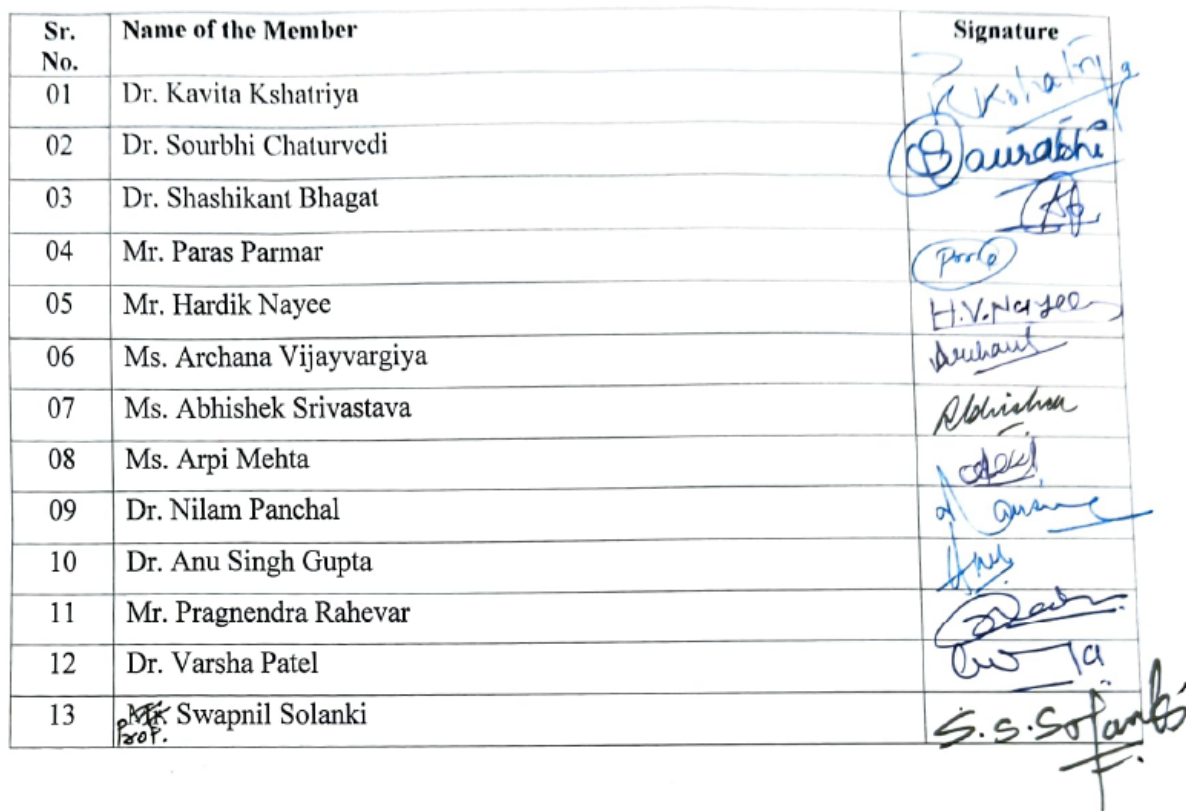 Sr. No. Name of the Member Signature
01 Dr. Kavita Kshatriya K Kshatriya
02 Dr. Sourbhi Chaturvedi Saurabhi
03 Dr. Shashikant Bhagat
04 Mr. Paras Parmar
05 Mr. Hardik Nayee H.V.Nayee
06 Ms. Archana Vijayvargiya
07 Ms. Abhishek Srivastava
08 Ms. Arpi Mehta
09 Dr. Nilam Panchal
10 Dr. Anu Singh Gupta Anu
11 Mr. Pragnendra Rahevar
12 Dr. Varsha Patel
13 Prof. Swapnil Solanki S.S.Solanki